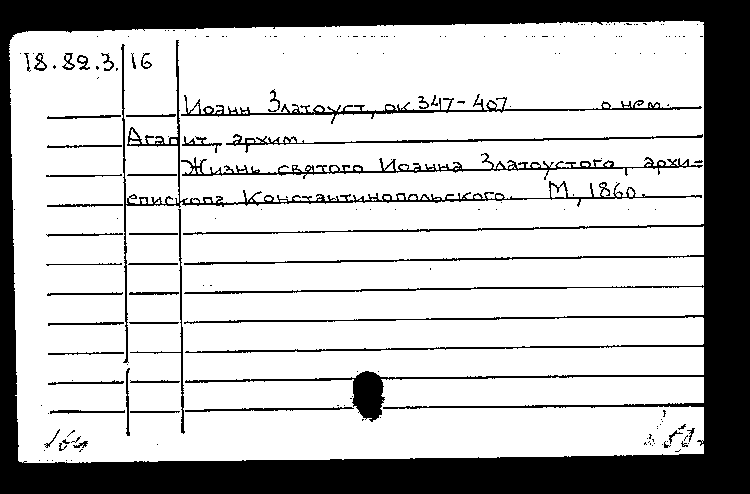 18.82.3. 16
Иоанн Златоуст, ок 347-407. о нем.
Агапит, архим.
Жизнь святого Иоанна Златоустого, архи=
епископа Константинопольского. М., 1860.